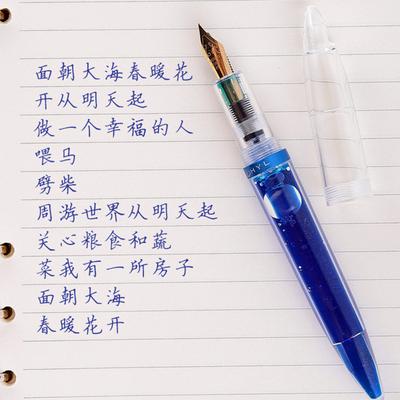 面朝大海春暖花
开从明天起
做一个幸福的人
喂马
劈柴
周游世界从明天起
关心粮食和蔬
菜我有一所房子
面朝大海
春暖花开